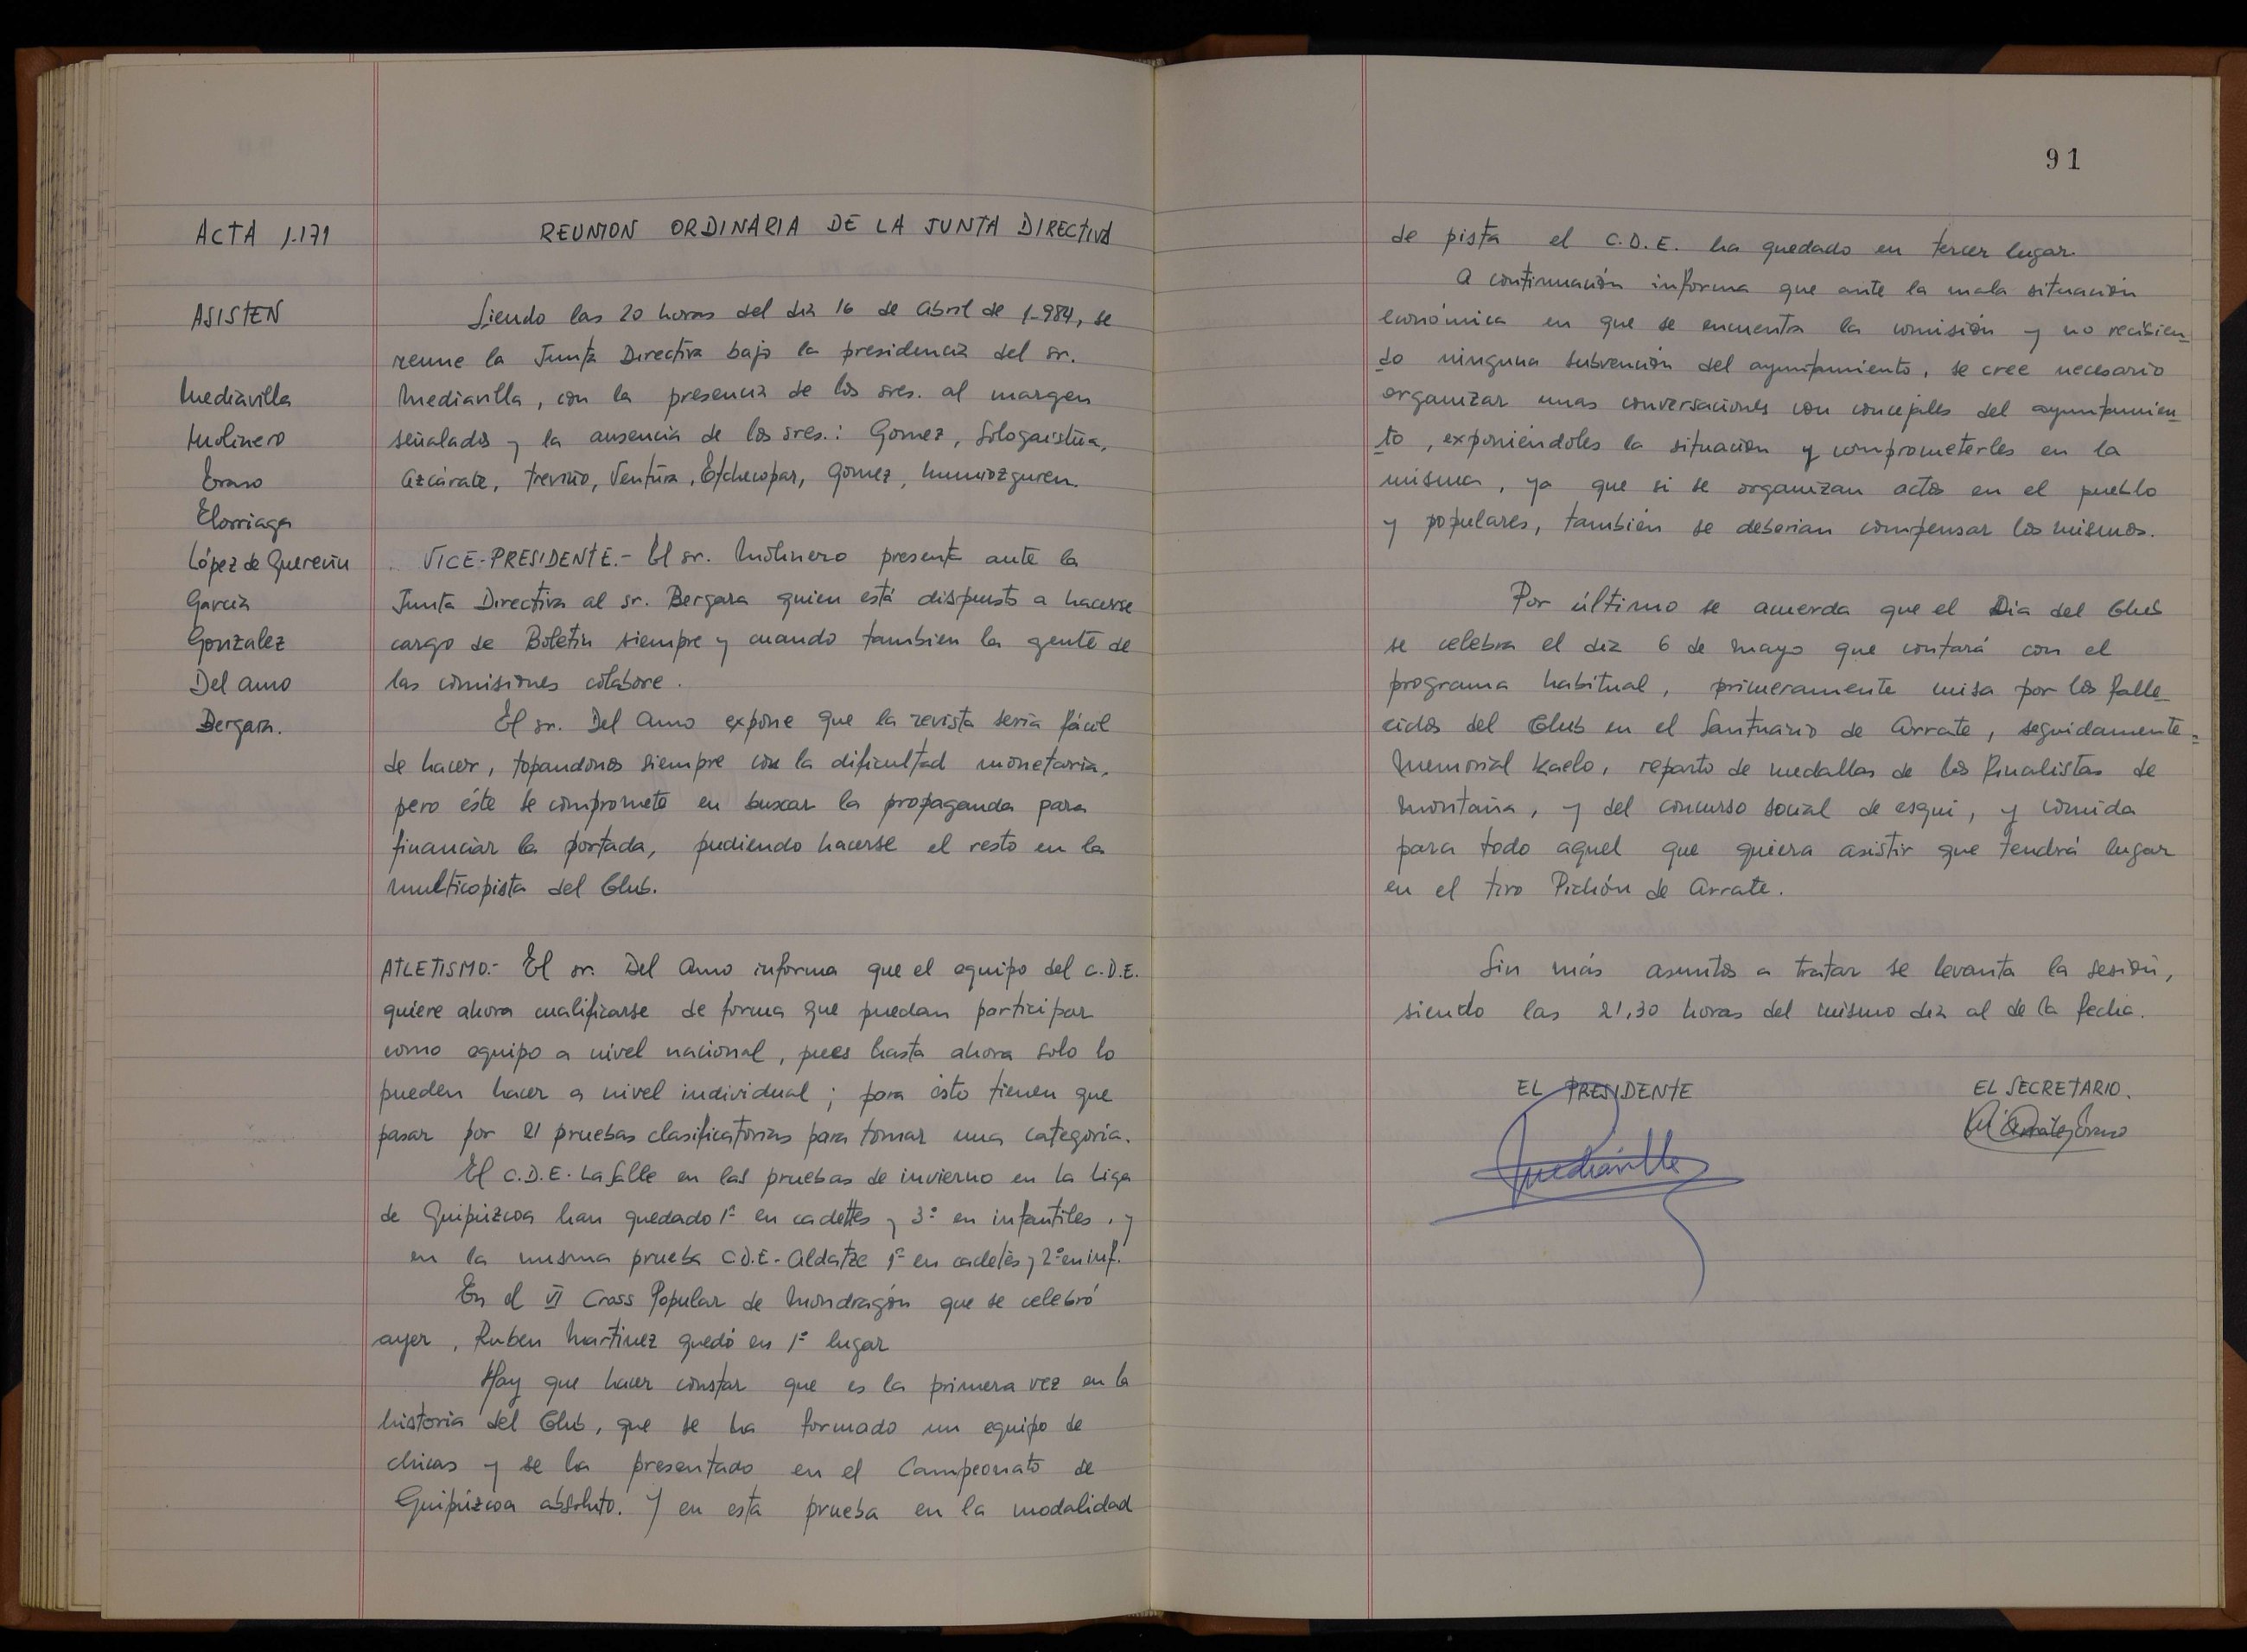 ACTA 1.171
REUNION ORDINARIA DE LA JUNTA DIRECTIVA
ASISTEN
Mediavilla
Molinero
Eraso
Elorriaga
López de Guereñu
García
Gonzalez
Del Amo
Bergara.
Siendo las 20 horas del día 16 de Abril de 1-984, se
reune la Junta Directiva bajo la presidencia del sr.
Mediavilla, con la presencia de los sres. al margen
señalados y la ausencia de los sres.: Gomez, Sologaistua,
Azcárate, Treviño, Ventura, Etchecopar, Gomez, Mumiozguren.
VICE-PRESIDENTE.- El sr. Molinero presenta ante la
Junta Directiva al sr. Bergara quien está dispuesto a hacerse
cargo de Boletin siempre y cuando tambien la gente de
las comisiones colabore.
El sr. Del Amo expone que la revista seria fácil
de hacer, topandonos siempre con la dificultad monetaria,
pero éste se compromete en buscar la propaganda para
financiar la portada, pudiendo hacerse el resto en la
multicopista del Club.
ATLETISMO.- El sr. Del Amo informa que el equipo del C.D.E.
quiere ahora cualificarse de forma que puedan participar
como equipo a nivel nacional, pues hasta ahora solo lo
pueden hacer a nivel individual; para ésto tienen que
pasar por 21 pruebas clasificatorias para tomar una categoria.
El C.D.E. La Salle en las pruebas de invierno en la Liga
de Guipúzcoa han quedado 1º en cadettes y 3º en infantiles, y
en la misma prueba C.D.E-Aldatze 1º en cadetes y 2º en inf.
En el VI Cross Popular de Mondragón que se celebró
ayer, Ruben Martinez quedó en 1º lugar
Hay que hacer constar que es la primera vez en la
historia del Club, que se ha formado un equipo de
chicas y se ha presentado en el Campeonato de
Guipúzcoa absoluto. Y en esta prueba en la modalidad
91
de pista el C.D.E. ha quedado en tercer lugar.
A continuación informa que ante la mala situación
económica en que se encuentra la comisión y no recibien-
do ninguna subvención del ayuntamiento, se cree necesario
organizar unas conversaciones con concejales del ayuntamien-
to, exponiéndoles la situación y comprometerles en la
misma, ya que si se organizan actos en el pueblo
y populares, también se deberian compensar los mismos.
Por último se acuerda que el Dia del Club
se celebra el dia 6 de Mayo que contará con el
programa habitual, primeramente misa por los falle-
cidos del Club en el Santuario de Arrate, seguidamente-
Memorial Kaelo, reparto de medallas de los finalistas de
Montaña, y del concurso social de esqui, y comida
para todo aquel que quiera asistir que tendrá lugar
en el tiro Pichón de Arrate.
Sin más asuntos a tratar se levanta la sesión,
siendo las 21,30 horas del mismo dia al de la fecha.
EL PRESIDENTE
EL SECRETARIO.
Mediavilla
Mª Arrate Eraso